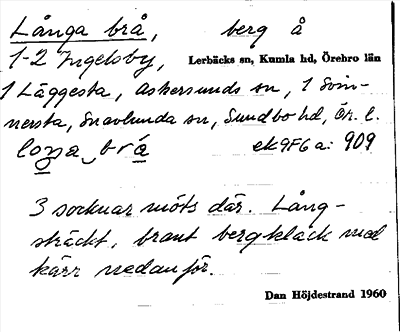 Långa brå, berg å
1-2 Ingelsby, Lerbäcks sn, Kumla hd, Örebro län
1 Läggesta, Askersunds sn, 1 Svin-
nersta, Snavlunda sn, Sundbo hd, Ör. l.
loŋa brá ek 9F6a: 909
3 socknar möts där. Lång-
sträckt, brant bergklack med
kärr nedanför.
Dan Höjdestrand 1960